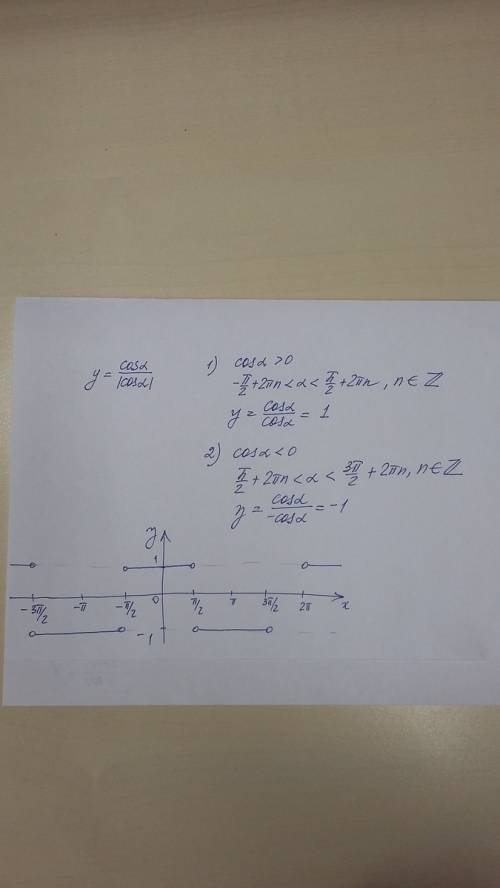 y = cosα/|cosα|
1) cosα > 0
-π/2 + 2πn < α < π/2 + 2πn, n ∈ ℤ
y = cosα/cosα = 1
2) cosα < 0
π/2 + 2πn < α < 3π/2 + 2πn, n ∈ ℤ
y = cosα/-cosα = -1
y
1
-3π/2 -π -π/2 0 π/2 π 3π/2 2π x
-1